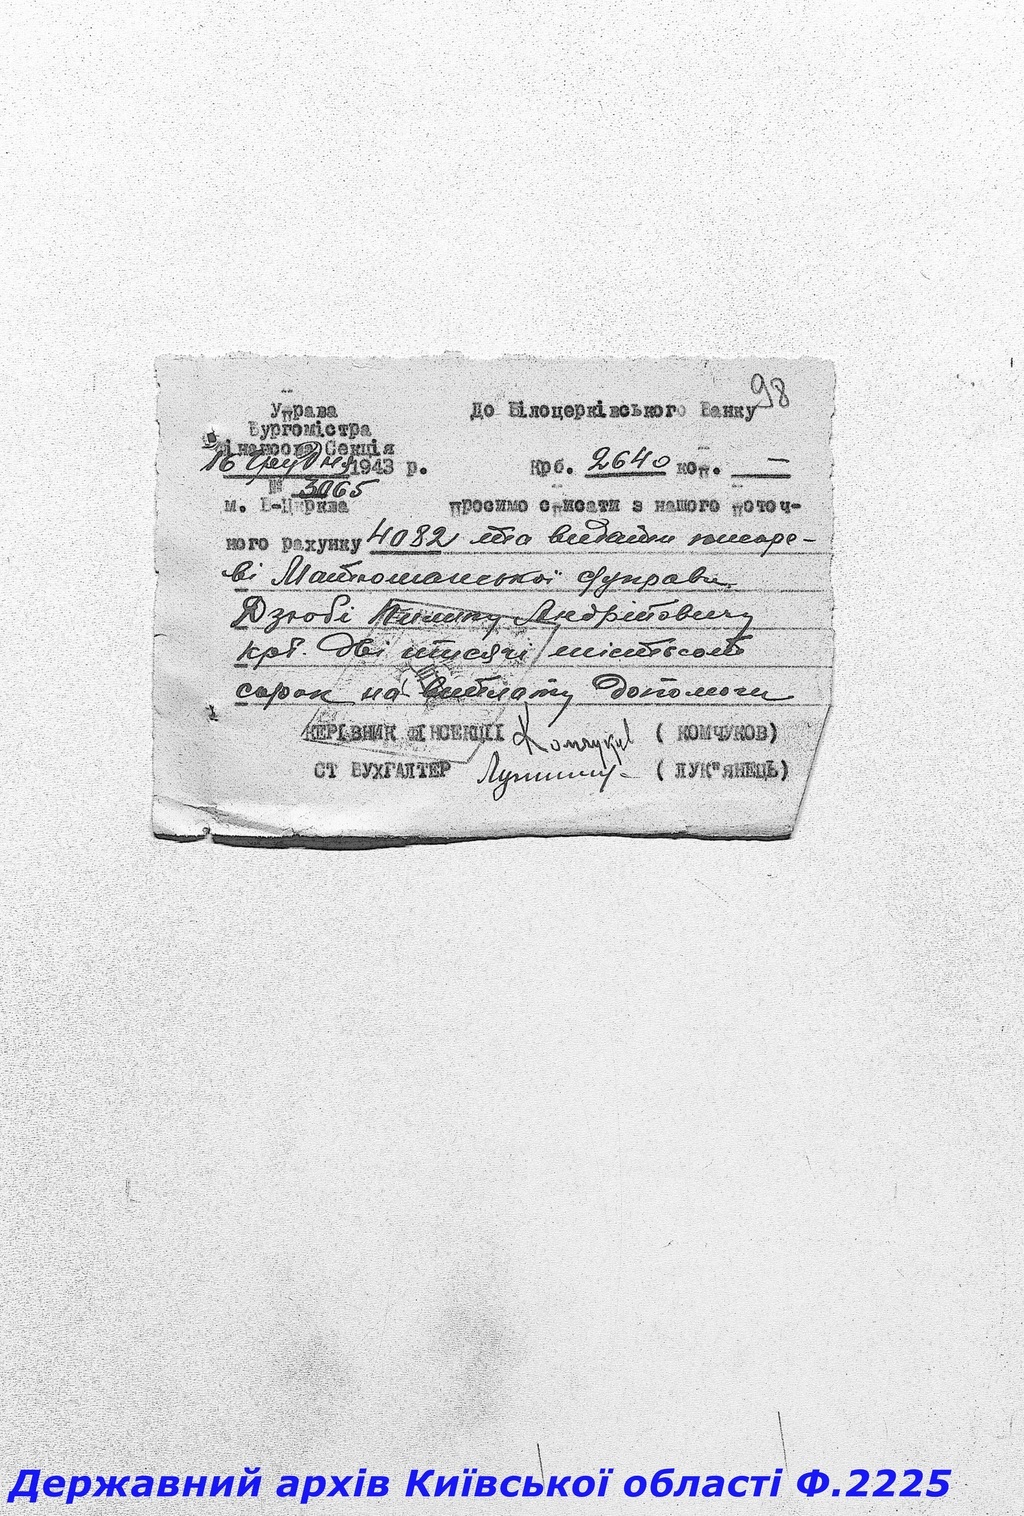 98
Управа
Бургомістра
Фінансова Секція
16 грудня 1943 р.
№ 3065
м. Б-Церква
До Білоцерківського Банку
Крб. 2640 коп. —
просимо списати з нашого поточ-
ного рахунку 4082 та видати писаре-
ві Матюшанської с/управи
Дзюбі Пилипу Андрійовичу
крб. Дві тисячі шістьсот
сорок на виплату допомоги
КЕРІВНИК ФІНСЕКЦІЇ ( КОМЧУКОВ)
СТ БУХГАЛТЕР ( ЛУК"ЯНЕЦЬ)
Державний архів Київської області Ф.2225